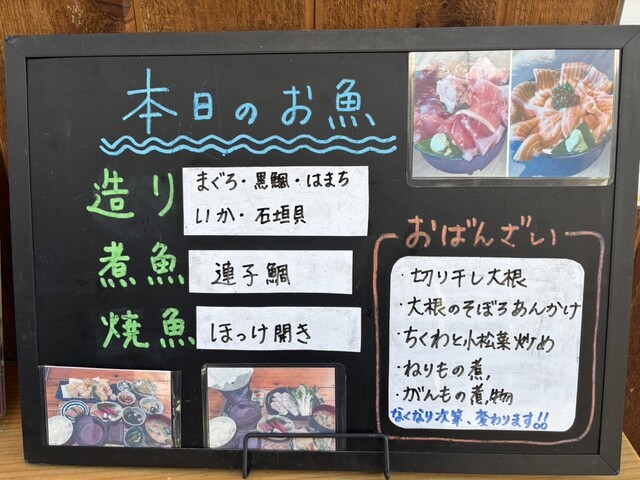 本日のお魚
造り
まぐろ・黒鯛・はまち
いか・石垣貝
煮魚
連子鯛
焼魚
ほっけ開き
おばんざい
・切り干し大根
・大根のそぼろあんかけ
・ちくわと小松菜炒め
・ねりもの煮
・がんもの煮物
なくなり次第、変わります!!